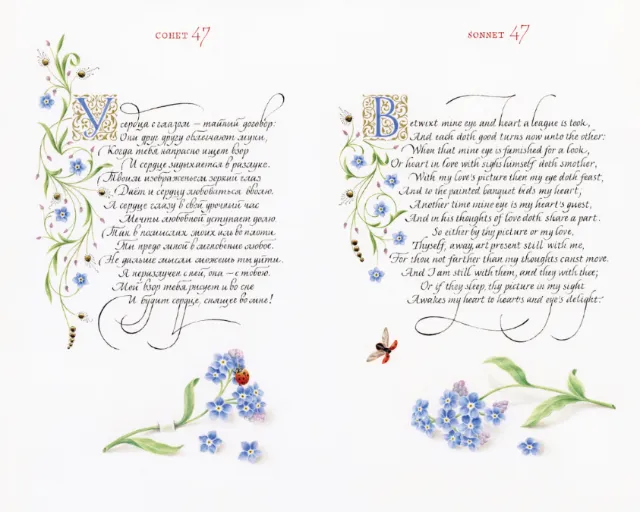 СОНЕТ 47
У сердца с глазом — тайный договор:
Они друг другу облегчают муки,
Когда тебя напрасно ищет взор
И сердце задыхается в разлуке.
Твоим изображеньем зоркий глаз
Дает и сердцу любоваться вволю.
А сердце глазу в свой урочный час
Мечты любовной уступает долю.
Так в помыслах моих иль во плоти
Ты предо мной в мгновенье любое.
Не дальше мысли можешь ты уйти.
Я неразлучен с ней, она – с тобою.
Мой взор тебя рисует и во сне
И будит сердце, спящее во мне!
SONNET 47
Betwixt mine eye and heart a league is took,
And each doth good turns now unto the other:
When that mine eye is famished for a look,
Or heart in love with sighs himself doth smother,
With my love's picture then my eye doth feast,
And to the painted banquet bids my heart,
Another time mine eye is my heart's guest,
And in his thoughts of love doth share a part.
So either by thy picture or my love,
Thyself, away, art present still with me,
For thou not farther than my thoughts canst move.
And I am still with them, and they with thee;
Or if they sleep, thy picture in my sight
Awakes my heart to heart's and eye's delight.